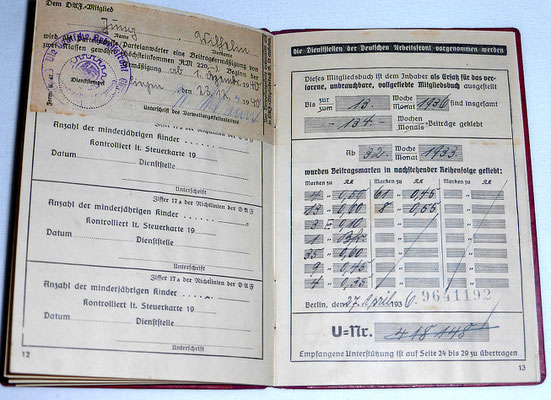 Dem DAF-Mitglied
Jung Wilhelm
Name Vorname
Dienststempel
Unterschrift des Verwaltungsstellenleiters
Anzahl der minderjährigen Kinder
Kontrolliert lt. Steuerkarte 19
Datum Dienststelle
Unterschrift
Ziffer 17a der Richtlinien der DAF
Anzahl der minderjährigen Kinder
Kontrolliert lt. Steuerkarte 19
Datum Dienststelle
Unterschrift
Ziffer 17a der Richtlinien der DAF
Anzahl der minderjährigen Kinder
Kontrolliert lt. Steuerkarte 19
Datum Dienststelle
Unterschrift
12
die Dienststellen der Deutschen Arbeitsfront vorgenommen werden
Dieses Mitgliedsbuch ist dem Inhaber als Ersatz für das verlorene, unbrauchbare, vollgeklebte Mitgliedsbuch ausgestellt
Bis zur zum 13. Woche Monat 1936 sind insgesamt
134.- Wochen Monats-Beiträge geklebt
Ab 32. Woche Monat 1933
wurden Beitragsmarken in nachstehender Reihenfolge geklebt:
Marken zu RM Marken zu RM Marken zu RM
4 0,50 61 0,45
13 0,60 8 0,55
3 0,10
1
35 0,60
9 0,45
4 0,35
Berlin, den 27 April 1936. 9641192
U=Nr. 418148
Empfangene Unterstützung ist auf Seite 24 bis 29 zu übertragen
13